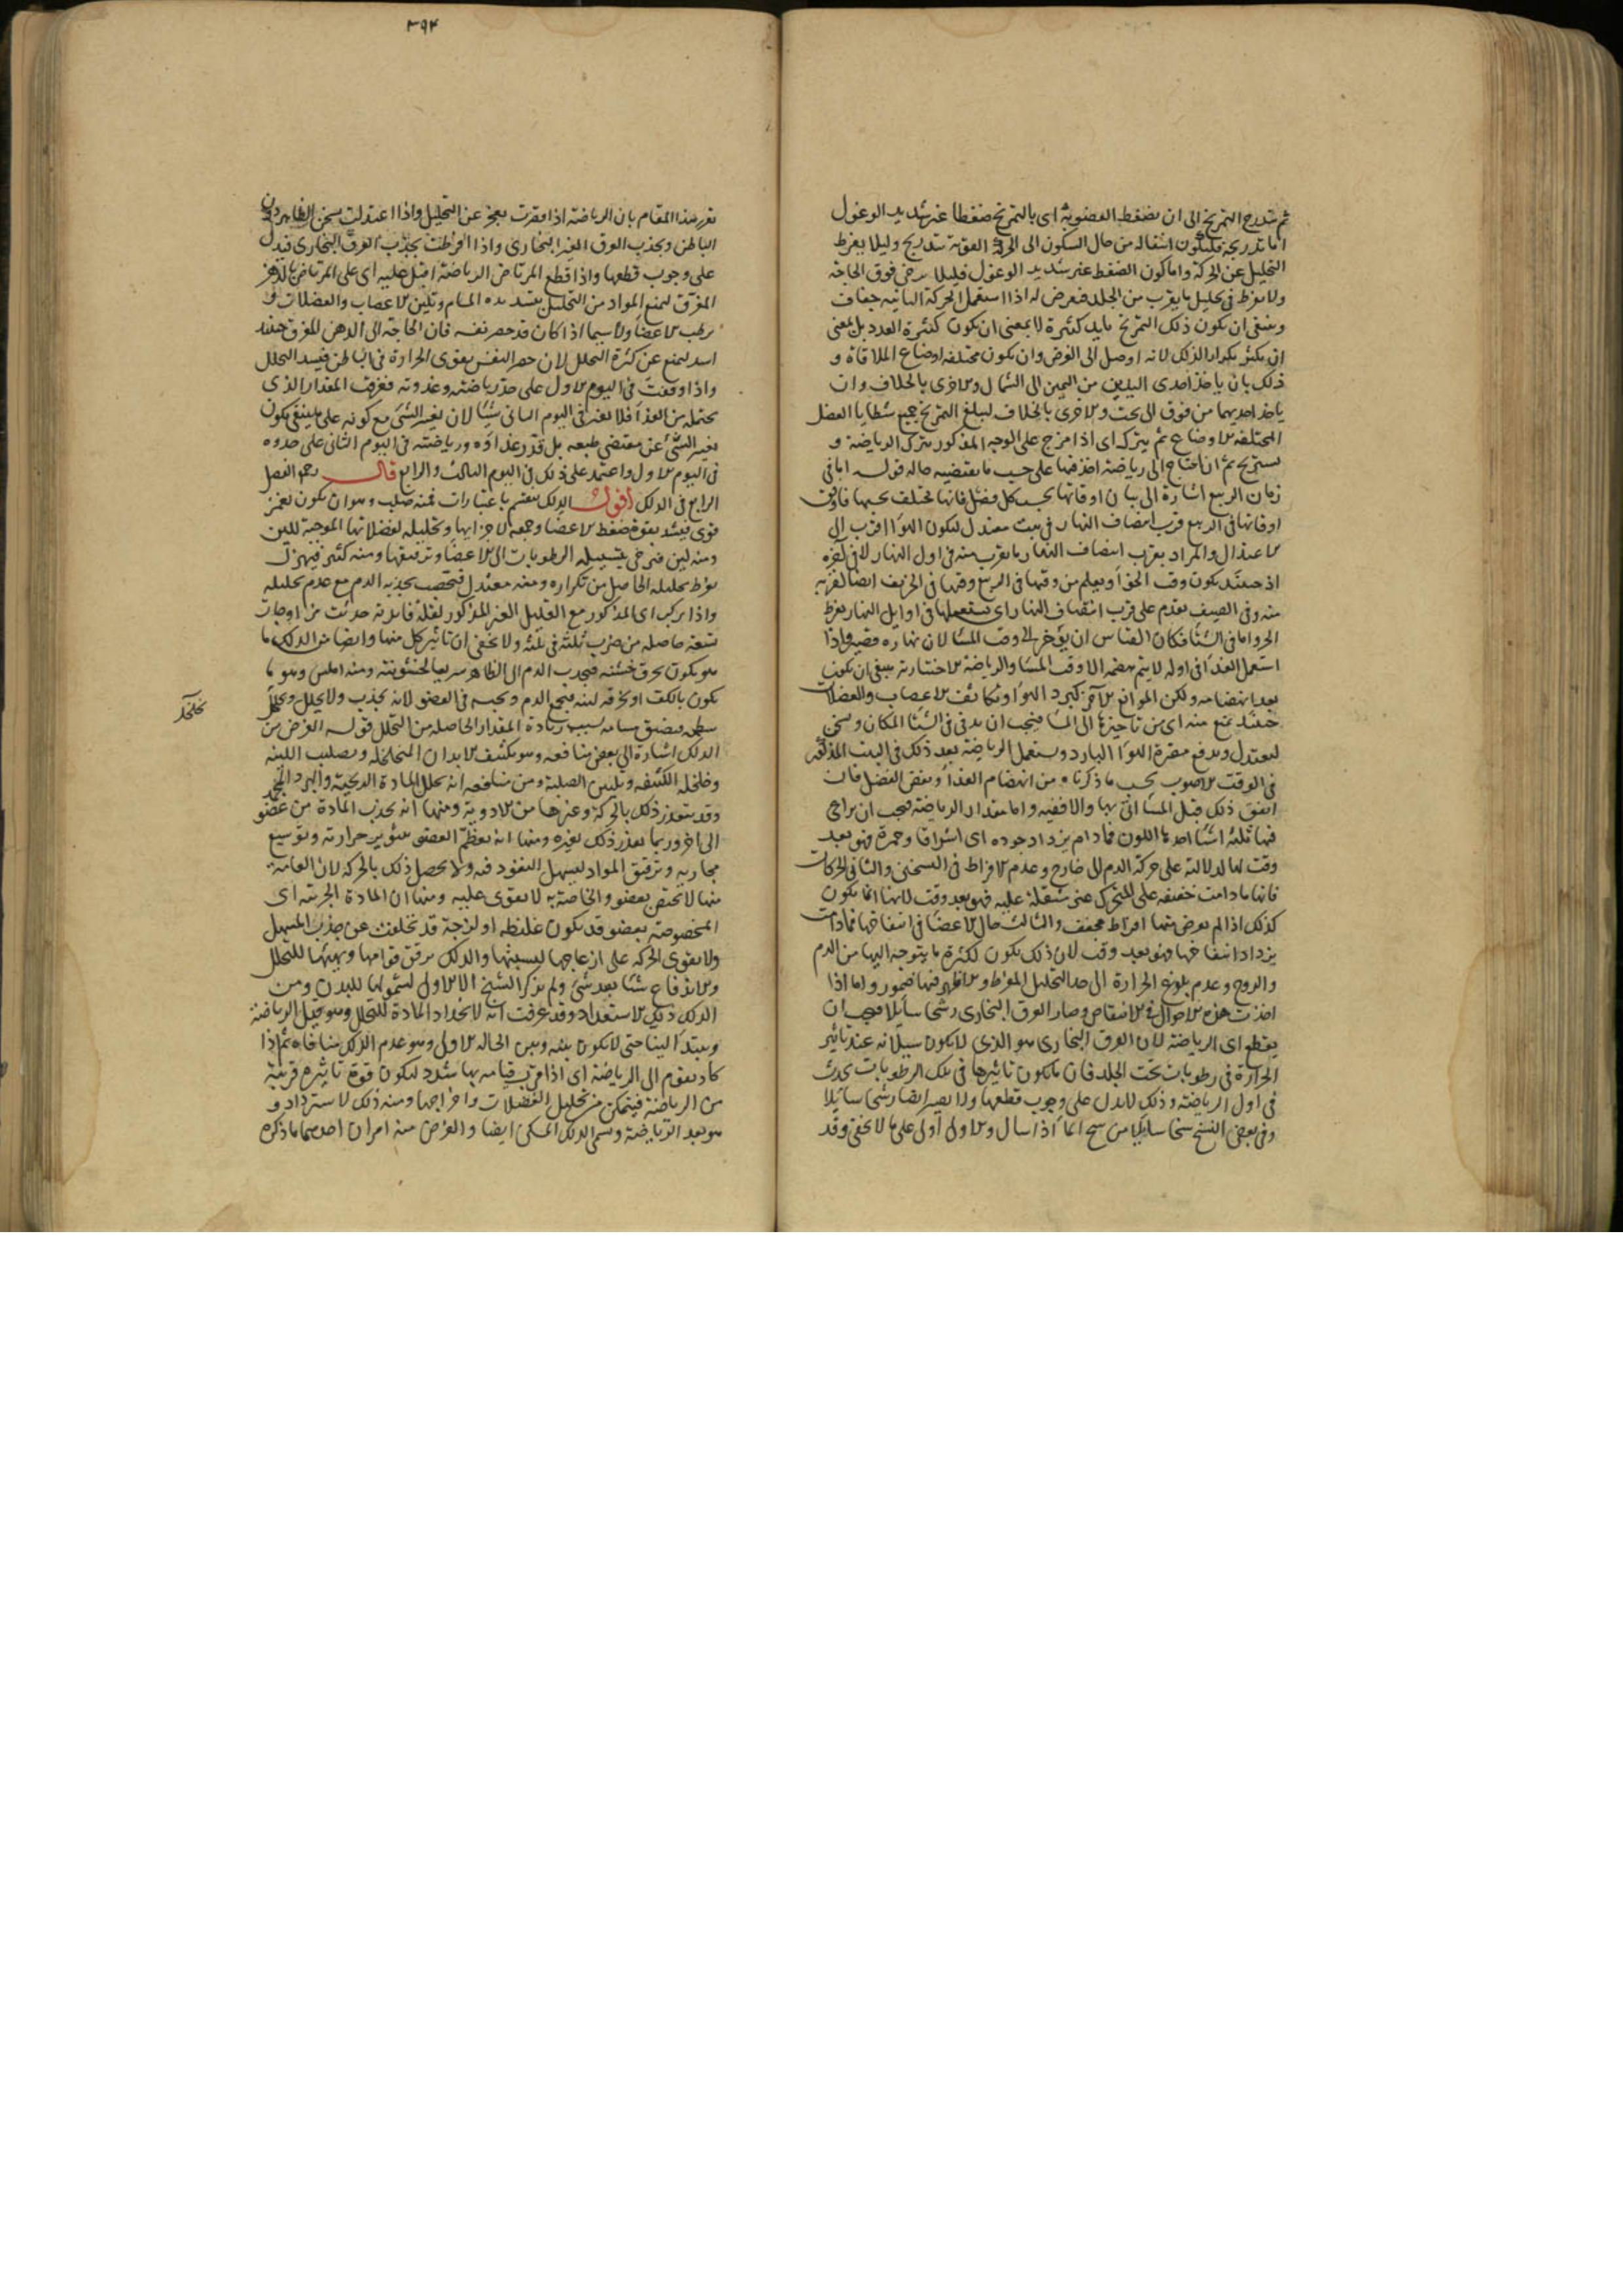 ثم يتدرج التمريخ الى ان يضغط العضو به اى بالتمريخ ضغطا غير شديد الوغول
اما تدريجه فليكون انتقاله من حال السكون الى الحركة القوية بتدريج وليلا يفرط
التحليل عن الحركة واما كون الضغط غير شديد الوغول فليلا يرخى فوق الحاجة
ولا يفرط فى تحليل ما يقرب من الجلد فيعرض له اذا استعمل الحركة الثانية جفاف
وينبغى ان يكون ذلك التمريخ بايد كثيرة لا بمعنى ان يكون كثيرة العدد بل بمعنى
ان يكثر تكرار الدلك لانه اوصل الى الغرض وان يكون مختلفة اوضاع الملاقاة و
ذلك بان ياخذ احدى اليدين من اليمين الى الشمال والاخرى بالخلاف وان
ياخذ احديهما من فوق الى تحت والاخرى بالخلاف ليبلغ التمريخ جميع شظايا العضل
المختلفة الاوضاع ثم يترك اى اذا مرخ على الوجه المذكور يترك الرياضة و
يستريح ثم ان احتاج الى رياضة اخذ فيها على حسب ما يقتضيه حاله قوله اما فى
زمان الربيع اشارة الى بيان اوقاتها بحسب كل فصل فانها تختلف بحسبها فاوفق
اوقاتها فى الربيع قرب انتصاف النهار فى بيت معتدل ليكون الهوا اقرب الى
الاعتدال والمراد بقرب انتصاف النهار ما يقرب منه فى اول النهار لا فى آخره
اذ حينئذ يكون وقت الحر ويعلم من وقتها فى الربيع وقتها فى الخريف ايضا لقربه
منه وفى الصيف يقدم على قرب انتصاف النهار اى يستعملها فى اوايل النهار لفرط
الحر واما فى الشتا فكان القياس ان يؤخر الى وقت المسا لان نهاره قصير واذا
استعمل الغذا فى اوله لا يتم هضمه الا وقت المسا والرياضة الاختيارية ينبغى ان يكون
بعد انهضامه ولكن الموانع الاخر كبرد الهوا وتكاثف الاعصاب والعضلات
حينئذ يمنع منه اى من تاخيرها الى المسا فيجب ان يدفى فى الشتا المكان ويسخن
ليعتدل ويدفع مضرة الهوا البارد ويستعمل الرياضة بعد ذلك فى البيت المذكور
فى الوقت الاصوب بحسب ما ذكرناه من انهضام الغذا ونفض الفضل فان
اتفق ذلك قبل المسا اتى بها والا ففيه واما مقدار الرياضة فيجب ان يراعى
فيها ثلثة اشيا احدها اللون فما دام يزداد جوده اى اشراقا وحمرة فهو بعد
وقت لها لدلالته على حركة الدم الى خارج وعدم الافراط فى التسخين والثانى الحركات
فانها ما دامت خفيفة على المتحرك غير مثقلة عليه فهو بعد وقت لانها انما يكون
كذلك اذا لم يعرض منها افراط مجفف والثالث حال الاعضا فى انتفاخها فما دامت
يزداد انتفاخها فهو بعد وقت لان ذلك يكون لكثرة ما يتوجه اليها من الدم
والروح وعدم بلوغ الحرارة الى حد التحليل المفرط والا ظهر فيها ضمور واما اذا
اخذت هذه الاحوال فى الانتقاص وصار العرق البخارى رشحا سايلا فيجب ان
يقطع اى الرياضة لان العرق البخارى هو الذى لا يكون سيلانه عند تاثير
الحرارة فى رطوبات تحت الجلد فان ما يكون تاثيرها فى تلك الرطوبات يحدث
فى اول الرياضة وذلك لا يدل على وجوب قطعها ولا يصير ايضا رشحا سايلا
وفى بعض النسخ سحا سايلا من سح الما اذا سال والاول اولى على ما لا يخفى وقد
٣٩٤
يقرر هذا المقام بان الرياضة اذا قصرت يعجز عن التحليل واذا اعتدلت يسخن الظاهر دون
الباطن ويجذب العرق الغير البخارى واذا افرطت يجذب العرق البخارى فيدل
على وجوب قطعها واذا قطع المرتاض الرياضة اقبل عليه اى على المرتاض بالدهن
المعرق ليمنع المواد من التحليل بتسديده المسام وتليين الاعصاب والعضلات و
يرطب الاعضا ولا سيما اذا كان قد حصر نفسه فان الحاجة الى الدهن المعرق حينئذ
اشد ليمنع عن كثرة التحلل لان حصر النفس يقوى الحرارة فى الباطن فيشتد التحلل
واذا وقفت فى اليوم الاول على حد رياضته وغذوته فعرفت المقدار الذى
يحتمله من الغذا فلا تغير فى اليوم الثانى شيئا لان تغير الشى مع كونه على ما ينبغى يكون
تغيير الشى عن مقتضى طبعه بل قدر غذاوه ورياضته فى اليوم الثانى على حدوه
فى اليوم الاول واعتمد على ذلك فى اليوم الثالث والرابع قال رحمه الفصل
الرابع فى الدلك اقول الدلك ينقسم باعتبارات فمنه صلب وهو ان يكون بغمز
قوى فيشد بقوة ضغط الاعضا وجمعه لاجزائها وتحليله لفضلاتها الموجبة للين
ومنه لين فيرخى بتسييله الرطوبات الى الاعضا وترقيقها ومنه كثير فيهزل
بفرط تحليله الحاصل من تكراره ومنه معتدل فيخصب بجذبه الدم مع عدم تحليله
واذا يركب اى المذكور مع القليل الغير المذكور لقلة فائدته حدثت مزاوجات
تسعة حاصله من ضرب ثلثة فى ثلثه ولا يخفى ان تاثير كل منها وايضا من الدلك ما
هو يكون بخرق خشنه فيجذب الدم الى الظاهر سريعا لخشونته ومنه املس وهو ما
يكون بالكف او بخرقه لينه فيجمع الدم ويحبسه فى العضو لانه يجذب ولا يحلل
سطحه فيضيق مسامه بسبب زيادة المقدار الحاصله من التخلخل قوله الغرض من
الدلك اشارة الى بعض منافعه وهو تكثيف الابدان المتخلخله وتصليب اللينه
وخلخله الكثيفه وتليين الصلبة ومن منافعه انه يحلل المادة الريحية والبرد
وقد يتعذر ذلك بالحركة وغيرها من الادوية ومنها انه يجذب المادة من عضو
الى اخر وربما يعذر ذلك بغيره ومنها انه يعظم العضو بتثوير حرارته وتوسيع
مجاريه وترقيق المواد ليسهل النفوذ فيه ولا يحصل ذلك بالحركه لان العامة
منها لا تختص بعضو والخاصة به لا يقوى عليه ومنها ان المادة الجزئيه اى
المخصوصة بعضو قد يكون غليظه او لزجة قد تخلفت عن جذب المسهل
ولا يقوى الحركه على ازعاجها لتشبثها والدلك يرقق قوامها ويهيئها للتحلل
والاندفاع شيئا بعد شى ولم يذكر الشيخ الا الاول لشمولها للبدن ومن
الدلك دلك الاستعداد وقد عرفت انه لاعداد المادة للتحلل وهو قبل الرياضة
ويبتدا لينا حتى لا يكون بينه وبين الحاله الاولى وهو عدم الدلك منافاه ثم اذا
كاد يقوم الى الرياضة اى اذا قرب قيامه بها شدد ليكون قوة تاثيره قريبة
من الرياضة فيتمكن من تحليل الفضلات واخراجها ومنه دلك الاسترداد و
هو بعد الرياضة ويسمى الدلك المسكن ايضا والغرض منه امران احدهما ما ذكره